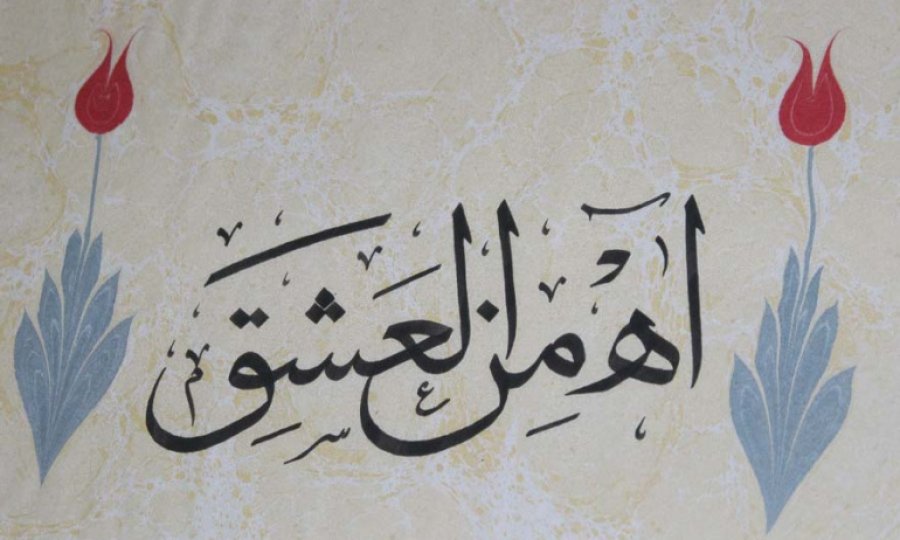 آه مِنَ العَشِقِ